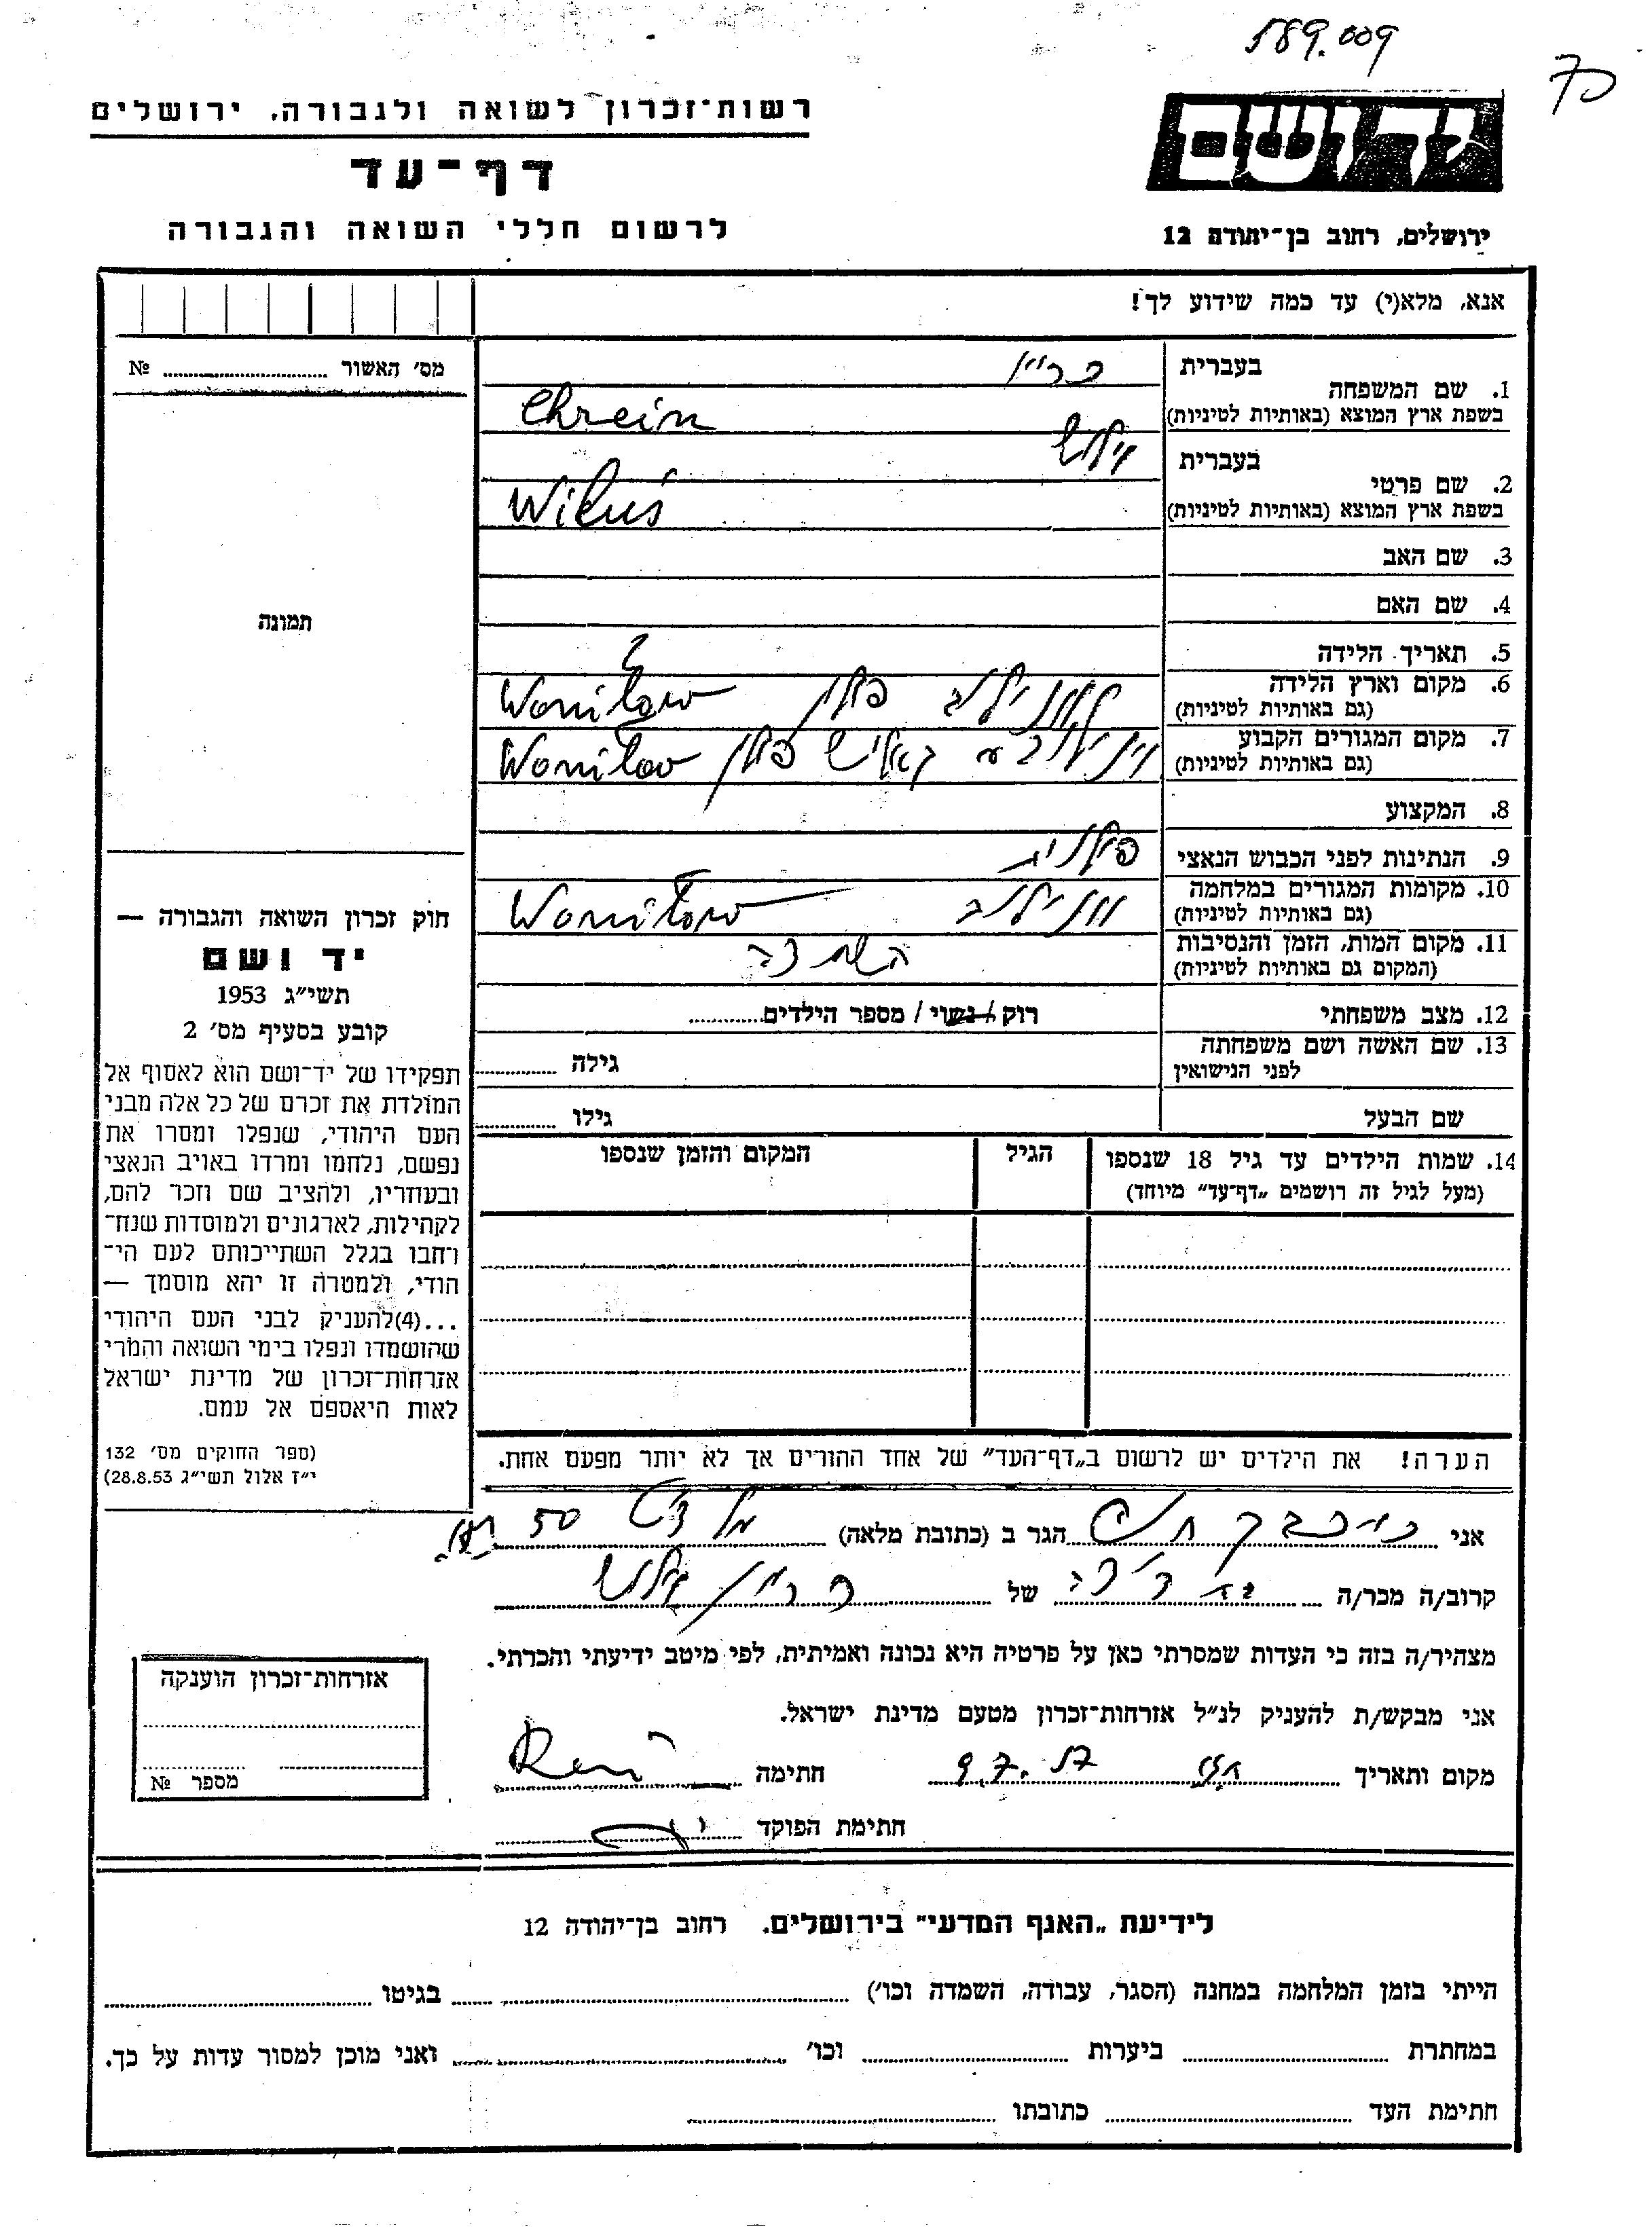 589.009
רשות־זכרון לשואה ולגבורה, ירושלים
ידושם
דף־עד
לרשום חללי השואה והגבורה
ירושלים, רחוב בן־יהודה 12
אנא, מלא(י) עד כמה שידוע לך!
מס׳ האשור №
בעברית
1. שם המשפחה
בשפת ארץ המוצא (באותיות לטיניות)
כריין
Chrein
בעברית
2. שם פרטי
בשפת ארץ המוצא (באותיות לטיניות)
וילוש
Wiluś
3. שם האב
4. שם האם
5. תאריך הלידה
?
6. מקום וארץ הלידה
(גם באותיות לטיניות)
פולין Woniłow
7. מקום המגורים הקבוע
(גם באותיות לטיניות)
פולין Woniłow
8. המקצוע
9. הנתינות לפני הכבוש הנאצי
פולנית
10. מקומות המגורים במלחמה
(גם באותיות לטיניות)
ווגילוב Woniłow
11. מקום המות, הזמן והנסיבות
(המקום גם באותיות לטיניות)
12. מצב משפחתי
רוק / נשוי / מספר הילדים
13. שם האשה ושם משפחתה
לפני הנישואין
גילה
שם הבעל
גילו
14. שמות הילדים עד גיל 18 שנספו
(מעל לגיל זה רושמים „דף־עד״ מיוחד)
הגיל
המקום והזמן שנספו
הערה! את הילדים יש לרשום ב„דף־העד״ של אחד ההורים אך לא יותר מפעם אחת.
תמונה
חוק זכרון השואה והגבורה —
יד ושם
תשי״ג 1953
קובע בסעיף מס׳ 2
תפקידו של יד־ושם הוא לאסוף אל
המולדת את זכרם של כל אלה מבני
העם היהודי, שנפלו ומסרו את
נפשם, נלחמו ומרדו באויב הנאצי
ובעוזריו, ולהציב שם וזכר להם,
לקהילות, לארגונים ולמוסדות שנח־
רבו בגלל השתייכותם לעם הי־
הודי, ולמטרה זו יהא מוסמך —
...(4)להעניק לבני העם היהודי
שהושמדו ונפלו בימי השואה והמרי
אזרחות־זכרון של מדינת ישראל
לאות היאספם אל עמם.
(ספר החוקים מס׳ 132
י״ז אלול תשי״ג 28.8.53)
אני הגר ב (כתובת מלאה) 50
קרוב/ה מכר/ה של כריין וילוש
מצהיר/ה בזה כי העדות שמסרתי כאן על פרטיה היא נכונה ואמיתית, לפי מיטב ידיעתי והכרתי.
אני מבקש/ת להעניק לנ״ל אזרחות־זכרון מטעם מדינת ישראל.
מקום ותאריך 9.7.57 חתימה
חתימת הפוקד
אזרחות־זכרון הוענקה
מספר №
לידיעת „האגף המדעי״ בירושלים. רחוב בן־יהודה 12
הייתי בזמן המלחמה במחנה (הסגר, עבודה, השמדה וכו׳) בגיטו
במחתרת ביערות וכו׳ ואני מוכן למסור עדות על כך.
חתימת העד כתובתו